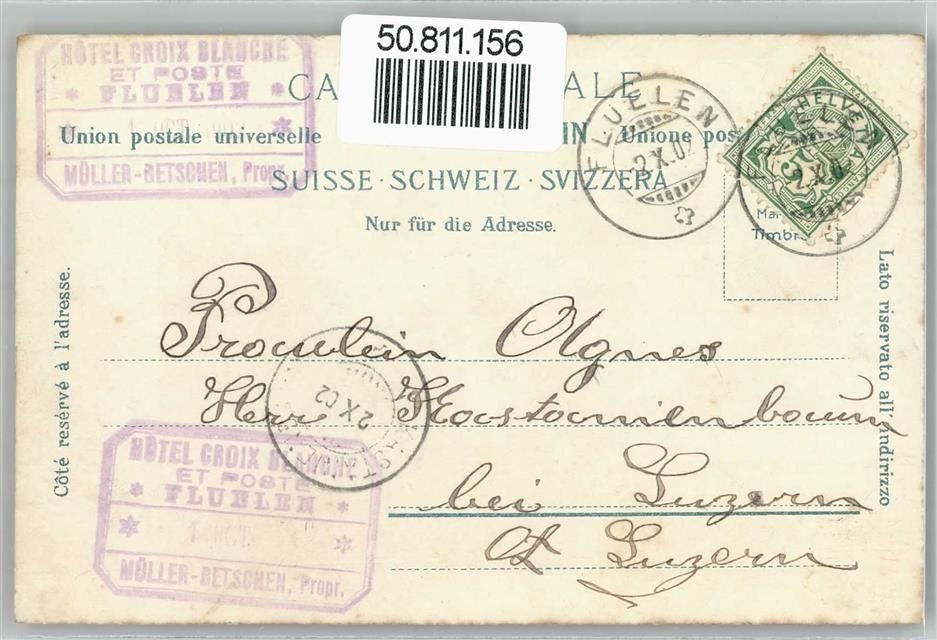 50.811.156
HÔTEL CROIX BLANCHE
ET POSTE
FLUELEN
MÜLLER-BETSCHEN, Propr.
CA ALE
Union postale universelle IN Unione pos
SUISSE · SCHWEIZ · SVIZZERA
Nur für die Adresse.
FLUELEN
2.X.02
HELVETIA
2.X.0
Mar
Timbr
Côté resérvé à l'adresse.
Lato riservato all'indirizzo
Fraulein Agnes
Herr Kastanienbaum
bei Luzern
Ct Luzern
2 X 02
HÔTEL CROIX BLANCHE
ET POSTE
FLUELEN
1 OCT.
MÜLLER-BETSCHEN, Propr.